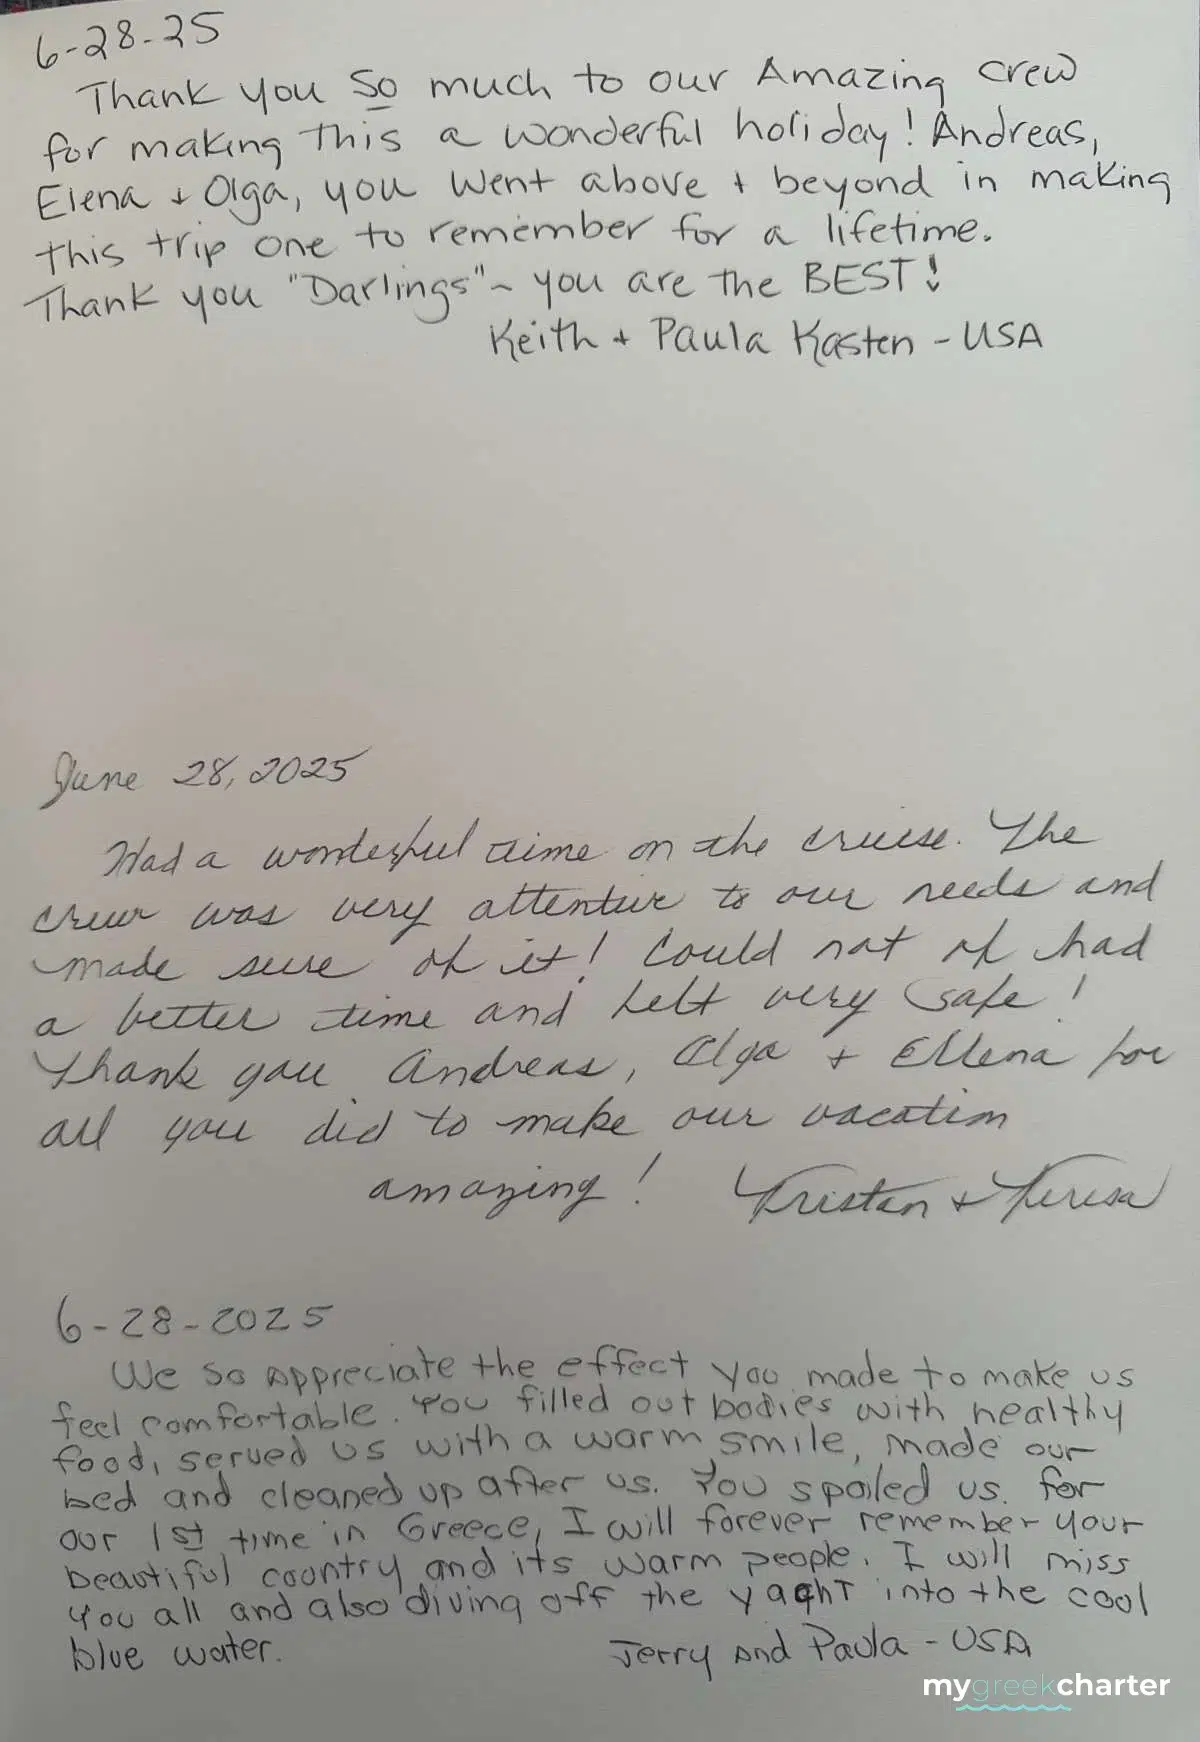 6-28-25
Thank you So much to our Amazing crew
for making this a wonderful holiday! Andreas,
Elena + Olga, you went above + beyond in making
this trip one to remember for a lifetime.
Thank you "Darlings"~ you are the BEST!
Keith + Paula Kasten - USA
June 28, 2025
Had a wonderful time on the cruise. The
crew was very attentive to our needs and
made sure of it! Could not of had
a better time and felt very safe!
Thank you Andreas, Olga + Ellena for
all you did to make our vacation
amazing! Tristan + Teresa
6-28-2025
We so appreciate the effect you made to make us
feel comfortable. You filled out bodies with healthy
food, served us with a warm smile, made our
bed and cleaned up after us. You spoiled us. For
our 1st time in Greece, I will forever remember your
beautiful country and its warm people. I will miss
you all and also diving off the yacht into the cool
blue water. Jerry and Paula - USA
mygreekcharter